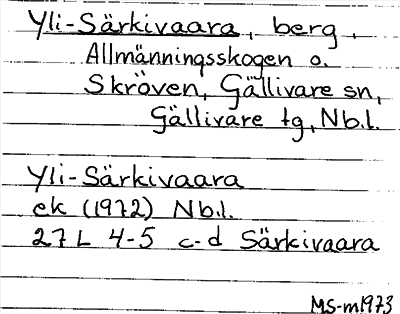 Yli-Särkivaara, berg,
Allmänningsskogen o.
Skröven, Gällivare sn,
Gällivare tg, Nb.l.
Yli-Särkivaara
ek (1972) Nb.l.
27L 4-5 c-d Särkivaara
MS-m1973